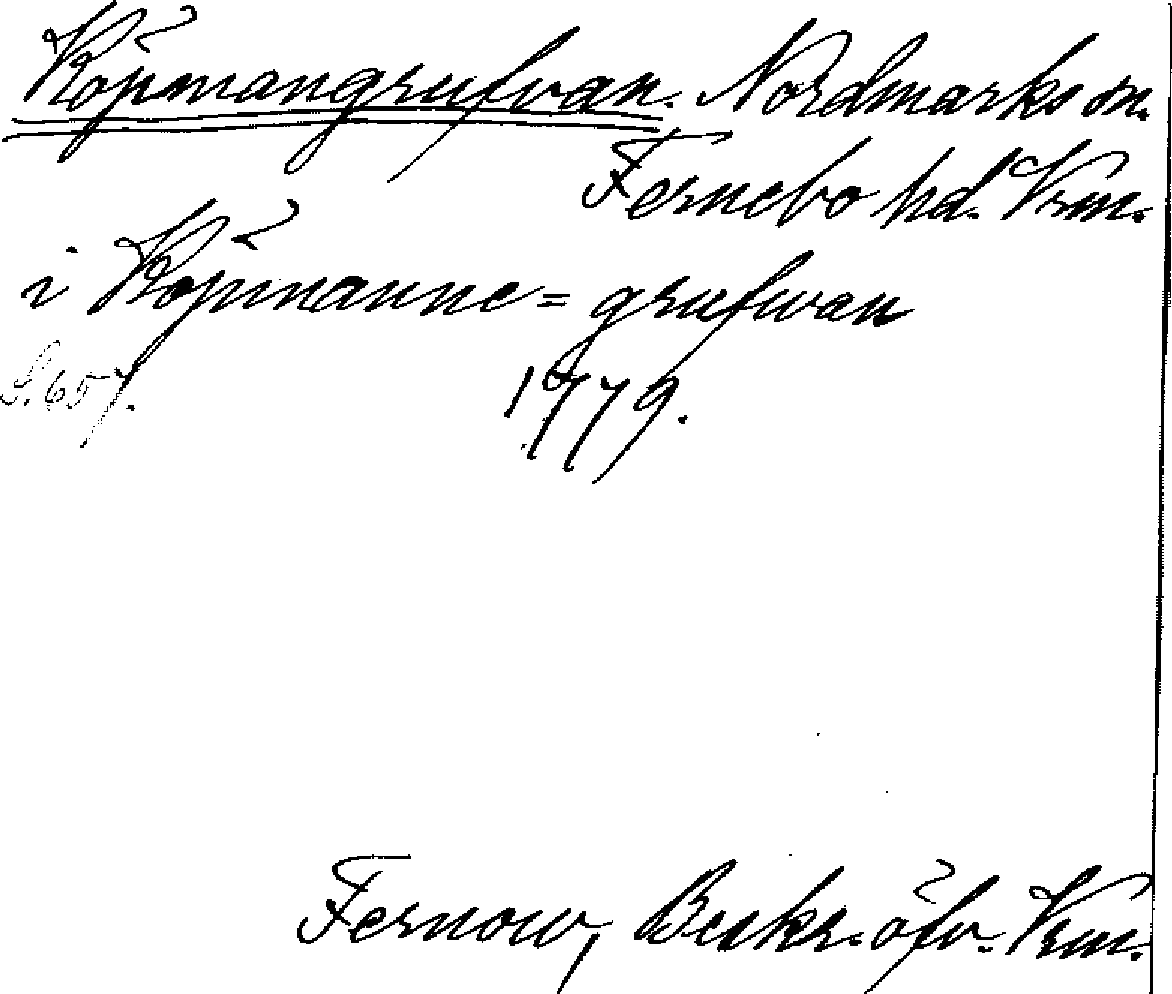 Köpmangrufvan. Nordmarks sn.
Fernebo hd. Vrm.
i Köpmanne=grufwan
S. 657. 1779.
Fernow, Beskr. öfv. Vrm.